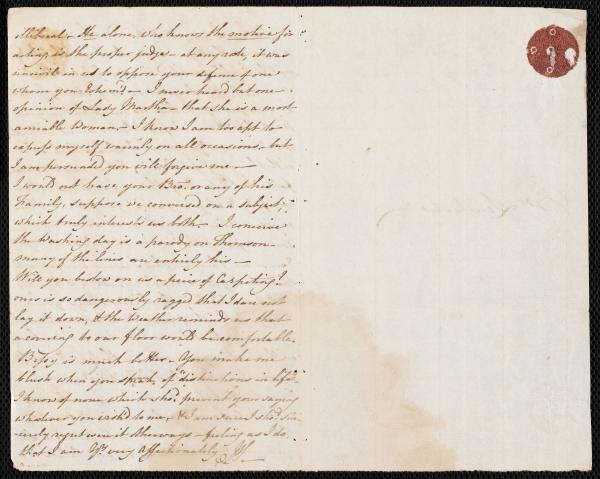 illiberal. He alone, who knows the motive for
acting, is the proper judge - at any rate, it was
uncivil in us to oppose your defence of one
whom you Esteem'd. - I never heard but one
opinion of Lady Martha - that she is a most
amiable Woman. - I know I am too apt to
express myself warmly on all occasions, but
I am persuaded you will forgive me -
I would not have your Bro: or any of his
Family, suppose we conversed on a subject,
which truly interests us both. - I conceive
the Washing day is a parody on Thomson -
many of the lines are entirely his -
Will you bestow on us a piece of Carpeting?
ours is so dangerously ragged that I dare not
lay it down, & the Weather reminds us that
a covering to our floor would be comfortable.
Bessy is much better - You make me
blush when you speak of "distinctions in life".
I know of none which sho'd prevent your saying
whatever you wish'd to me, & I am sure I sho'd sin-
cerely regret were it otherways - feeling as I do,
that I am Yr. very affectionately